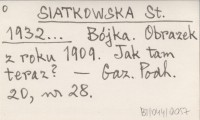 SIATKOWSKA St.
1932... Bójka. Obrazek
z roku 1909. Jak tam
teraz? — Gaz. Podh.
20, nr 28.